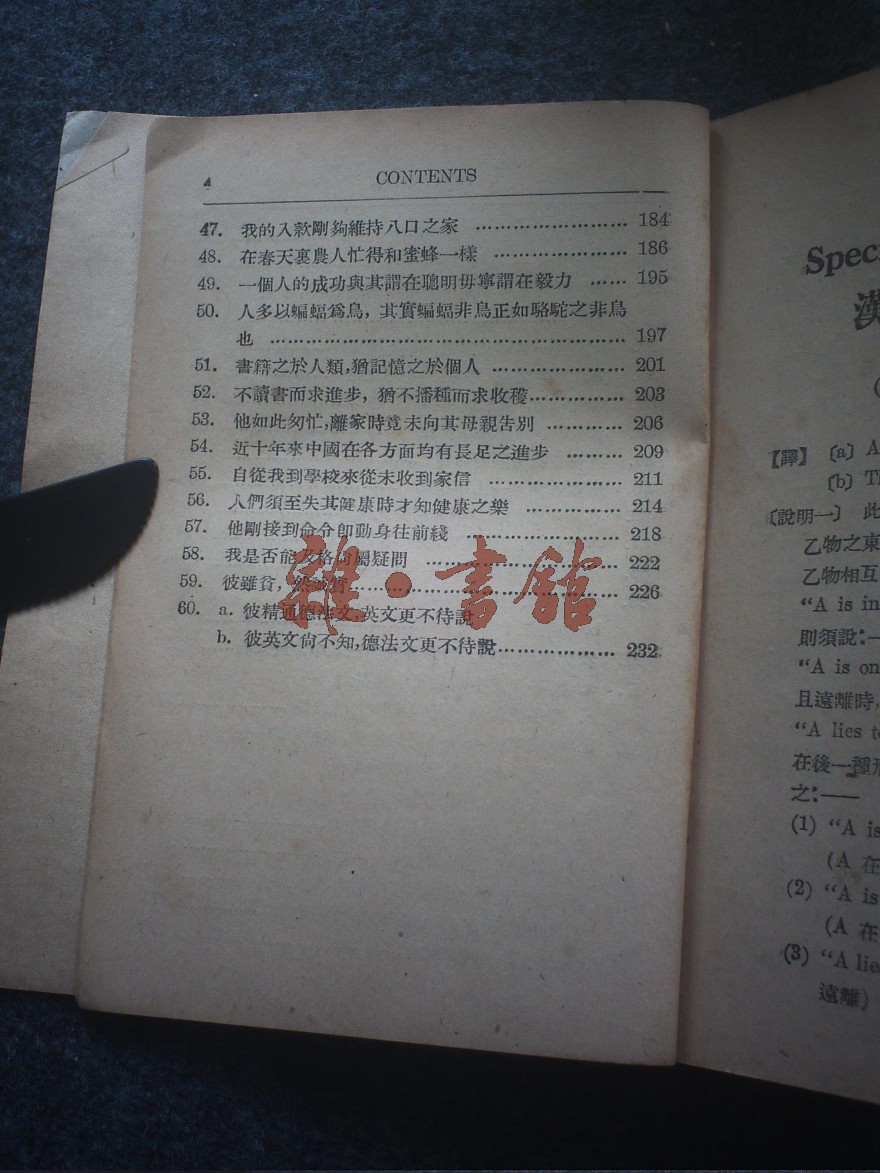 4 CONTENTS
47. 我的入款剛夠維持八口之家 ........................ 184
48. 在春天裏農人忙得和蜜蜂一樣 .................... 186
49. 一個人的成功與其謂在聰明毋寧謂在毅力 ...... 195
50. 人多以蝙蝠爲鳥，其實蝙蝠非鳥正如駱駝之非鳥
也 ........................................................ 197
51. 書籍之於人類，猶記憶之於個人 .................... 201
52. 不讀書而求進步，猶不播種而求收穫 .............. 203
53. 他如此匆忙，離家時竟未向其母親告別 .......... 206
54. 近十年來中國在各方面均有長足之進步 .......... 209
55. 自從我到學校來從未收到家信 ...................... 211
56. 人們須至失其健康時才知健康之樂 ................ 214
57. 他剛接到命令卽動身往前綫 ........................ 218
58. 我是否能及格尙屬疑問 ............................ 222
59. 彼雖貧，然誠實 .................................... 226
60. a. 彼精通德法文，英文更不待說
b. 彼英文尙不知，德法文更不待說 .................. 232
雜·書館
Spec
漢
【譯】 〔a〕 A
〔b〕 T
〔說明一〕 此
乙物之東
乙物相互
“A is in
則須說：—
“A is on
且遠離時，
“A lies t
在後一種形
之：——
(1) “A is
(A 在
(2) “A is
(A 在
(3) “A lie
遠離)